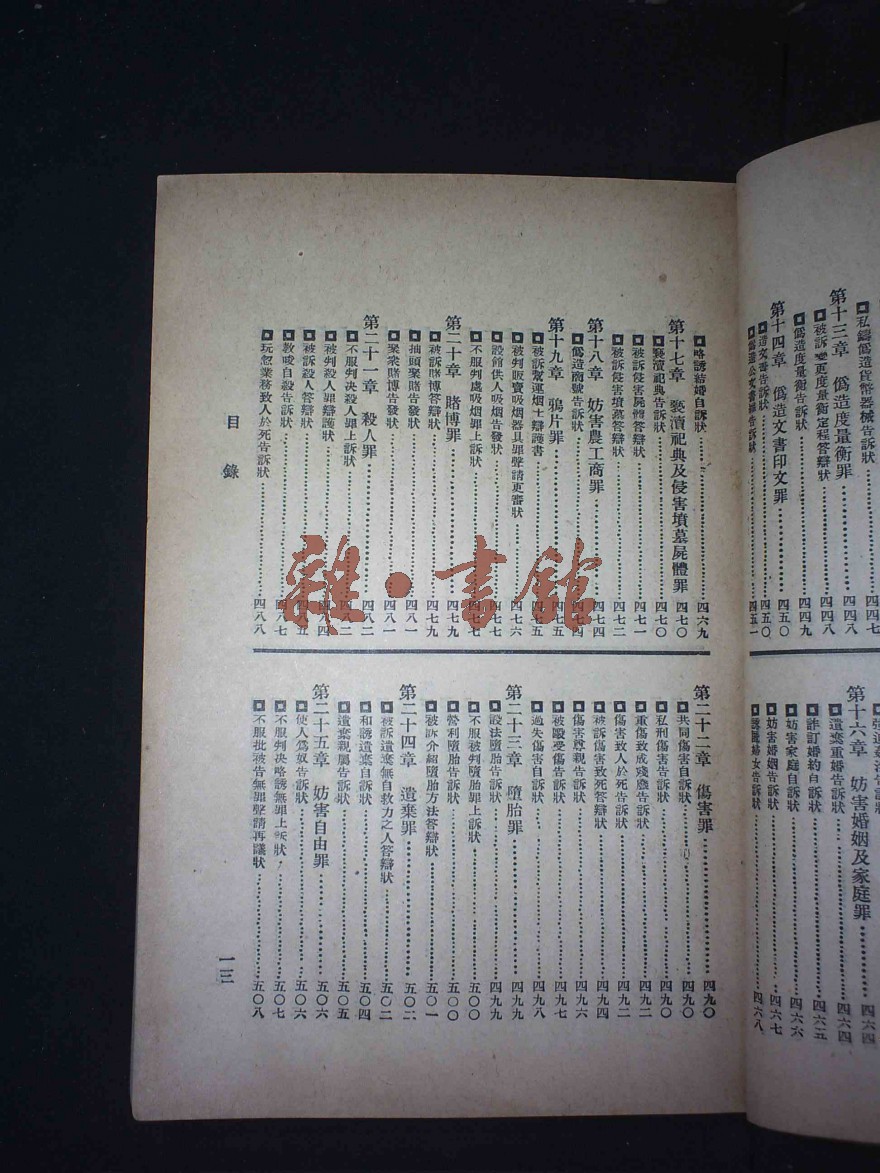 私鑄偽造貨幣器械告訴狀……四四七
第十三章 偽造度量衡罪……四四八
被訴變更度量衡定程答辯狀……四四八
偽造度量衡告訴狀……四四九
第十四章 偽造文書印文罪……四五〇
造文書告訴狀……四五〇
偽造公文書告訴狀……四五一
第十六章 妨害婚姻及家庭罪……四六四
重婚告訴狀……四六四
詐訂婚約自訴狀……四六五
妨害家庭自訴狀……四六六
妨害婚姻告訴狀……四六七
婦女告訴狀……四六八
略誘結婚自訴狀……四六九
第十七章 褻瀆祀典及侵害墳墓屍體罪……四七〇
褻瀆祀典告訴狀……四七〇
被訴侵害屍體答辯狀……四七一
被訴侵害墳墓答辯狀……四七二
第十八章 妨害農工商罪……四七四
偽造商號告訴狀……四七四
第十九章 鴉片罪……四七五
被訴幫運烟土辯護書……四七五
被判販賣吸烟器具罪聲請更審狀……四七六
設館供人吸烟告發狀……四七七
不服判處吸烟罪上訴狀……四七七
第二十章 賭博罪……四七九
被訴賭博答辯狀……四七九
抽頭聚賭告發狀……四八一
聚衆賭博告發狀……四八一
第二十一章 殺人罪……四八二
不服判决殺人罪上訴狀……四八二
被判殺人罪辯護狀……四八四
被訴殺人答辯狀……四八五
教唆自殺告訴狀……四八七
玩忽業務致人於死告訴狀……四八八
第二十二章 傷害罪……四九〇
共同傷害自訴狀……四九〇
私刑傷害告訴狀……四九〇
重傷致成殘廢告訴狀……四九二
傷害致人於死告訴狀……四九二
被訴傷害致死答辯狀……四九四
傷害尊親告訴狀……四九六
被毆受傷告訴狀……四九七
過失傷害自訴狀……四九八
第二十三章 墮胎罪……四九九
設法墮胎告訴狀……四九九
不服被判墮胎罪上訴狀……五〇〇
營利墮胎告訴狀……五〇〇
被訴介紹墮胎方法答辯狀……五〇一
第二十四章 遺棄罪……五〇二
被訴遺棄無自救力之人答辯狀……五〇二
和誘遺棄自訴狀……五〇四
遺棄親屬告訴狀……五〇五
第二十五章 妨害自由罪……五〇六
使人為奴告訴狀……五〇六
不服判决略誘無罪上訴狀……五〇七
不服批被告無罪聲請再議狀……五〇八
目錄
一三
雜·書館